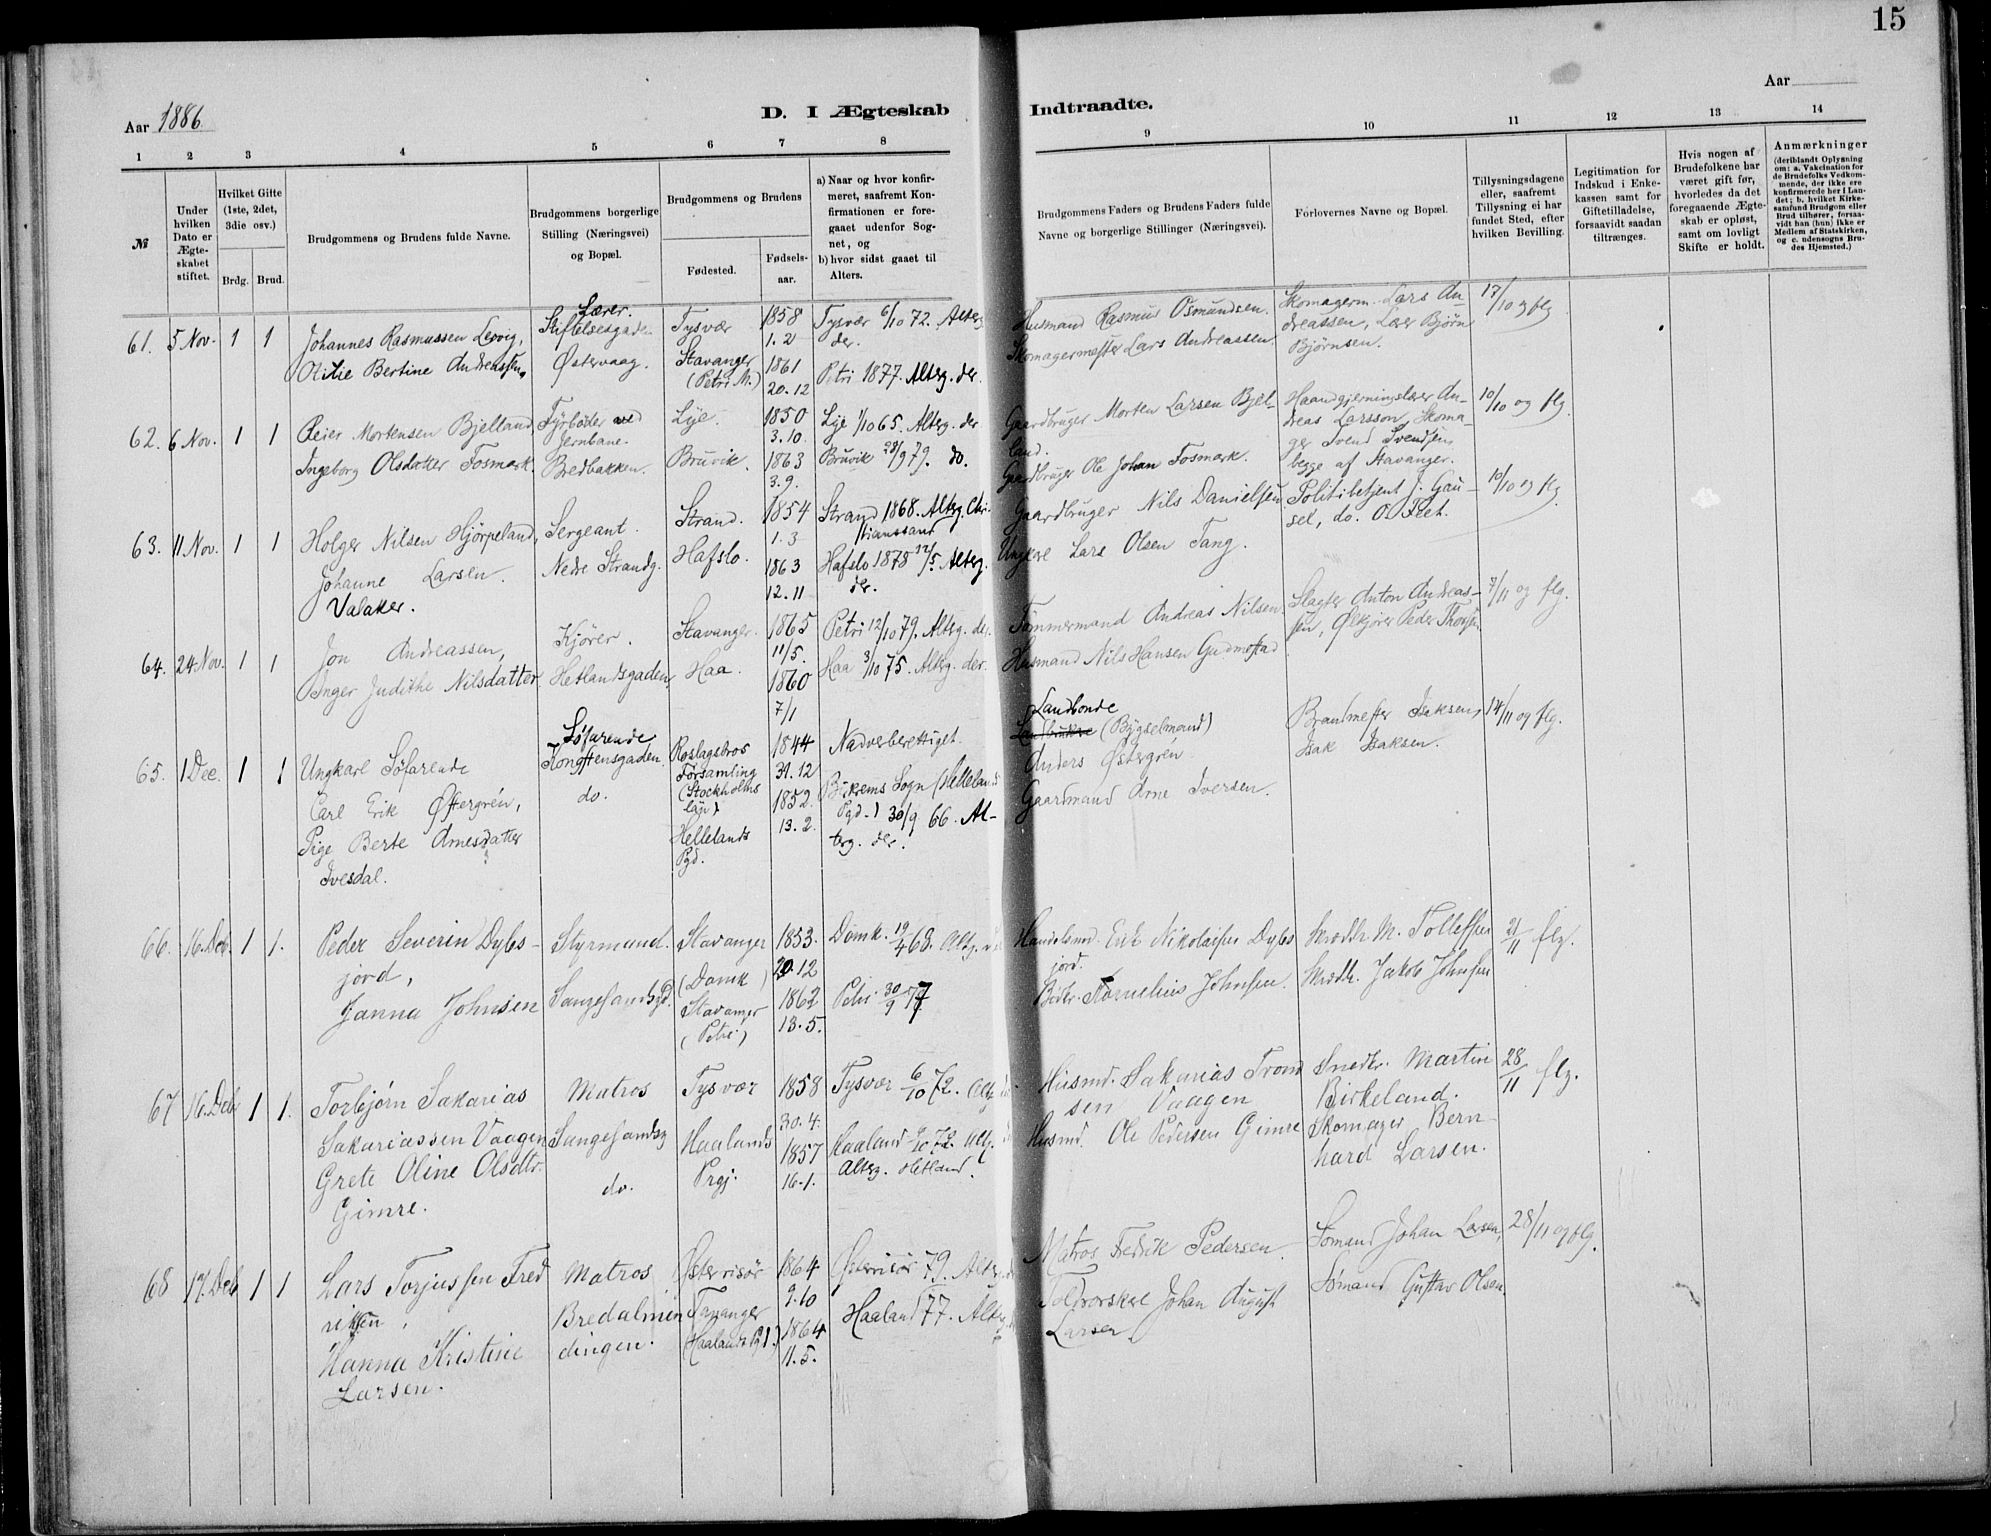 15
Aar 1886
D. I Ægteskab
Indtraadte.
Aar
1 2 3 4 5 6 7 8
9 10 11 12 13 14
№
Under hvilken Dato er Ægteskabet stiftet.
Hvilket Gifte (1ste, 2det, 3die osv.)
Brdg. Brud.
Brudgommens og Brudens fulde Navne.
Brudgommens borgerlige Stilling (Næringsvei) og Bopæl.
Brudgommens og Brudens
Fødested.
Fødsels-aar.
a) Naar og hvor konfirmeret, saafremt Konfirmationen er foregaaet udenfor Sognet, og
b) hvor sidst gaaet til Alters.
Brudgommens Faders og Brudens Faders fulde Navne og borgerlige Stillinger (Næringsvei).
Forlovernes Navne og Bopæl.
Tillysningsdagene eller, saafremt Tillysning ei har fundet Sted, efter hvilken Bevilling.
Legitimation for Indskud i Enkekassen samt for Giftetilladelse, forsaavidt saadan tiltrænges.
Hvis nogen af Brudefolkene har været gift før, hvorledes da det foregaaende Ægteskab er opløst, samt om lovligt Skifte er holdt.
Anmærkninger
(deriblandt Oplysning om: a. Vakcination for de Brudefolks Vedkommende, der ikke ere konfirmerede her i Landet; b. hvilket Kirkesamfund Brudgom eller Brud tilhører, forsaavidt han (hun) ikke er Medlem af Statskirken, og c. udensogns Brudes Hjemsted.)
61. 5 Nov. 1 1
Johannes Rasmussen Lervig,
Otilie Bertine Andreassen.
Lærer.
Stiftelsesgaden
Østervaag.
Tysvær
Stavanger
(Petri M.)
1858
1.2
1861
20.12
Tysvær 6/10 72. Alterg.
der.
Petri 1877. Alterg. der.
Husmand Rasmus Osmundsen.
Skomagermester Lars Andreassen.
Skomagerm. Lars An-
dreassen, Lærer Bjørn
Bjørnsen.
17/10 og flg
62. 6 Nov. 1 1
Reier Mortensen Bjelland
Ingeborg Olsdatter Fosmark.
Fyrbøder ved
Jernbane.
Bredbakken.
Lye.
Bruvik.
1850
3.10.
1863
3.9.
Lye 1/10 65. Alterg. der
Bruvik 28/9 79. do.
Gaardbruger Morten Larsen Bjel-
land.
Gaardbruger Ole Johan Fosmark.
Haandgjerningslærer An-
dreas Larsson, Skoma-
ger Svend Svendsen,
begge af Stavanger.
10/10 og flg
63. 11 Nov. 1 1
Holger Nilsen Hjørpeland,
Johanne Larsen.
Valaker.
Sergeant.
Nedre Strandg.
Strand.
Hafslo.
1854
1.3
1863
12.11
Strand 1868. Alterg. Chri-
stianssand
Hafslo 1878 12/5. Alterg.
der.
Gaardbruger Nils Danielsen
Ungkarl Lars Olsen Tang.
Politibetjent J. Gau-
sel, do. O. Tret.
10/10 og flg
64. 24 Nov. 1 1
Jon Andreassen,
Inger Judithe Nilsdatter.
Kjører.
Hetlandsgaden,
Stavanger.
Haa.
1865
11/5.
1860
7/1
Petri 12/10 79. Alterg. der.
Haa 3/10 75. Alterg. der.
Tømmermand Andreas Nilsen
Husmand Nils Hansen Gudmestad
Slagter Anton Andreas-
sen, Ølkjører Peder Thorsen.
7/11 og flg.
65. 1 Dec. 1 1
Ungkarl Søfarende
Carl Erik Østergrén,
Pige Berte Arnesdatter
Ivesdal.
Søfarende
Kongstensgaden.
do.
Roslagsbros
Församling
(Stockholms
län)
Hellelands
Pgd.
1844
31.12
1852.
13.2.
Nadverberettiget.
Bjerkreims Sogn (Helleland
Pgd.) 30/9 66. Al-
terg. der.
Landbonde
(Bygselmand)
Anders Østergrén
Gaardmand Arne Iversen.
Brandmester Isaksen,
Isak Isaksen.
14/11 og flg.
66. 16. Deb. 1 1.
Peder Severin Dybs-
jord,
Janna Johnsen
Styrmand.
Langesandsgd.
Stavanger
(Domk)
Stavanger
(Petri)
1853.
20.12
1862
13.5.
Domk. 19/4 68. Altg.
Petri 30/9 77
Handelsmd. Erik Nikolaisen Dybs
jord.
Kornelius Johnsen.
Skrædr. M. Tollefsen
Skrædr. Jakob Johnsen
21/11 flg.
67 16. Deb 1 1.
Torbjørn Sakarias
Sakariassen Vaagen
Grete Oline Olsdtr.
Gimre.
Matros
Langesandsg
do.
Tysvær
Haalands
Prgj.
1858
30.4.
1857
16-1.
Tysvær 6/10 72. Altg.
Haaland 6/10 72. Altg.
Alterg. Hetland.
Husmd. Sakarias Trond
sen Vaagen
Husmd. Ole Pedersen Gimre
Snedkr. Martin
Birkeland.
Skomager Bern-
hard Larsen.
28/11 flg.
68 17. Deb 1 1
Lars Torjussen Fred
riksen,
Hanna Kristine
Larsen.
Matros
Bredalmen
dingen.
Østerrisør
Tananger
(Haalands Pgd.)
1864
9.10
1864
11.5.
Østerrisør 79. Alterg.
Haaland 77. Alterg.
Matros Fredrik Pedersen
Toldrorskarl Johan August
Larsen
Sømand Johan Larsen,
Sømand Gustav Olsen,
28/11 og flg.